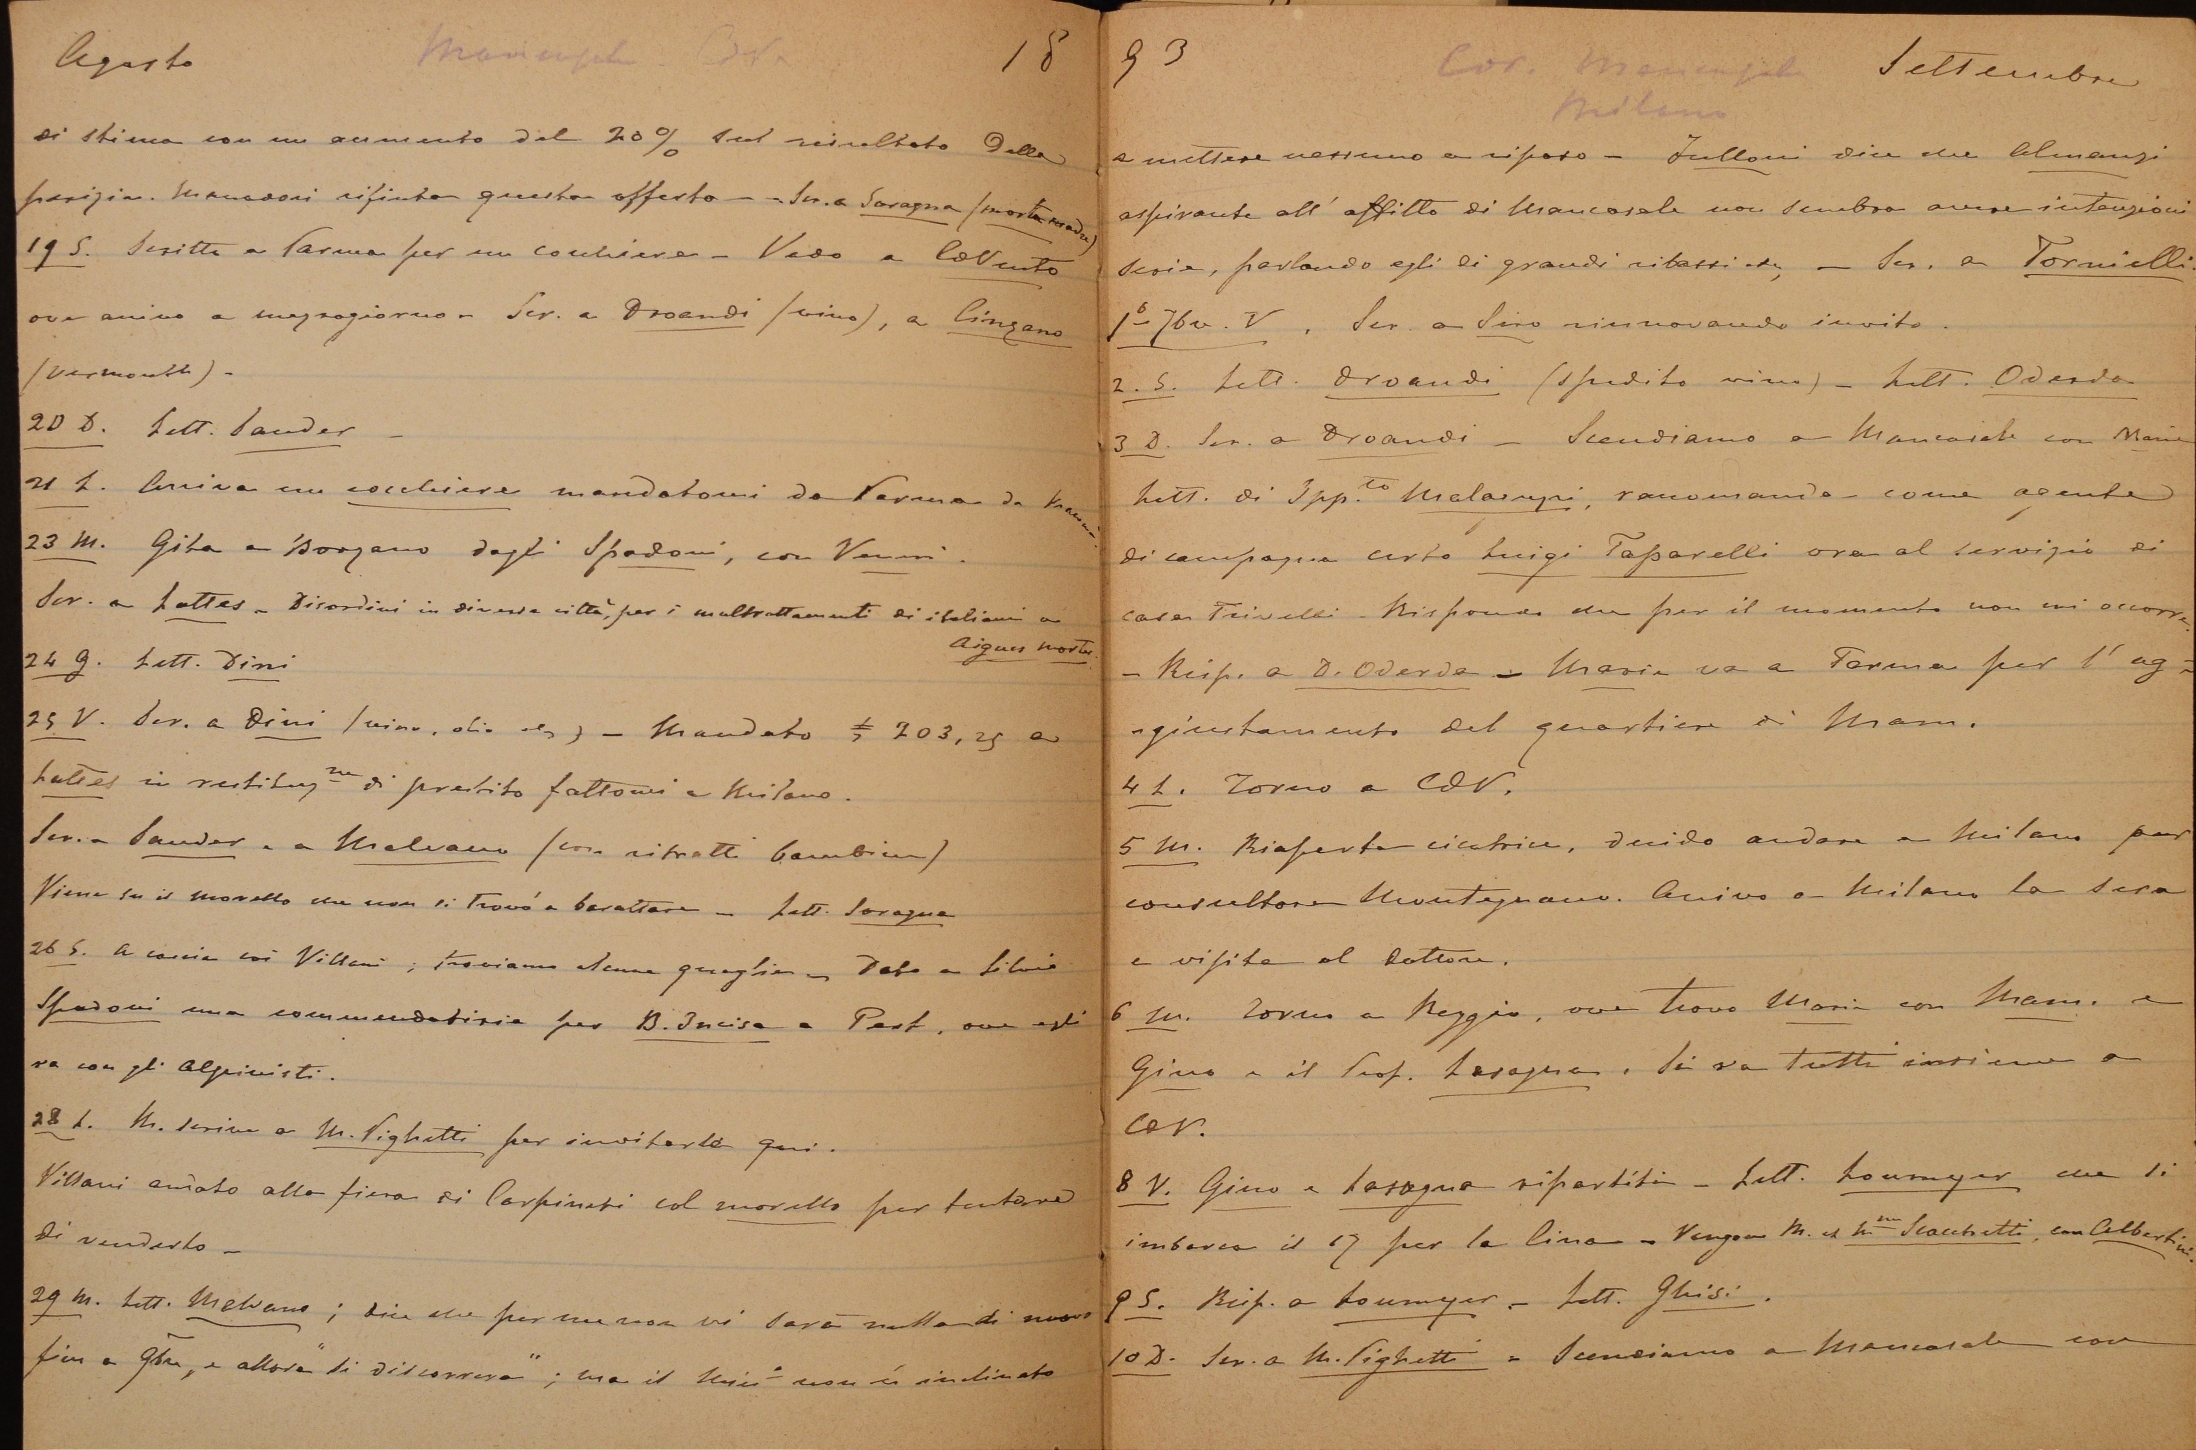 Agosto
18
di stima con un aumento del 20% sul risultato della
perizia. Mancasi rifiuta questa offerta — Scr. a Soragna (morta madre)
19 S. Scritto a Parma per un cocchiere — Vado a CdVento
ove arrivo a mezzogiorno — Scr. a Droandi (vino), a Cinzano
(vermouth) —
20 D. Lett. Sauder —
21 L. Arriva un cocchiere mandatomi da Parma da
23 M. Gita a Borzano dagli Spadoni, con Vanni.
Scr. a Lattes — Disordini in diverse città, per i maltrattamenti di italiani a
Aigues mortes.
24 G. Lett. Dini
25 V. Scr. a Dini (vino, olio etc) — Mandato £ 203,25 a
Lattes in restituz.ne di prestito fattomi a Milano.
Scr. a Sauder e a Malvano (con ritratti bambine)
Viene su il morello che non si trovò a barattare — Lett. Soragna
26 S. A caccia coi Villani; troviamo alcune quaglie — Dato a Silvio
Spadoni una commendatizia per B. Incisa a Pest, ove egli
va con gli alpinisti.
28 L. M. scrive a M. Pighetti per invitarla qui.
Villani andato alla fiera di Carpineti col morello per tentare
di venderlo —
29 M. Lett. Malvano; dice che per me non vi sarà nulla di nuovo
fin a 9bre, e allora "si discorrerà"; ma il Min.o non è inclinato
93
Settembre
Cdv. Mancasale
Milano
a mettere nessuno a riposo — Fulloni dice che Almansi
aspirante all'affitto di Mancasale non sembra avere intenzioni
serie, parlando egli di grandi ribassi etc, — Scr. a Tornielli.
1o 7bre. V, Scr. a Siro rinnovando invito.
2. S. Lett. Droandi (spedito vino) — Lett. Oderda
3 D. Scr. a Droandi — Scendiamo a Mancasale con Maria
Lett. di Ipp.to Malaguzzi, raccomanda come agente
di campagna certo Luigi Taparelli ora al servizio di
casa Trivelli. Rispondo che per il momento non mi occorre.
— Risp. a D. Oderda — Maria va a Parma per l'ag-
-giustamento del quartiere di Mam.
4 L. Torno a CdV.
5 M. Riaperta cicatrice, decido andare a Milano per
consultare Montegnano. Arrivo a Milano la sera
e visita al dottore.
6 M. Torno a Reggio, ove trovo Maria con Mam. e
Gino e il Prof. Lasagna. Si va tutti insieme a
CdV.
8 V. Gino e Lasagna ripartiti — Lett. Loumyer che si
imbarca il 17 per la Cina — Vengon M. et Mme Scacchetti, con Albertini.
9 S. Risp. a Loumyer — Lett. Ghisi.
10 D. Scr. a M. Pighetti — Scendiamo a Mancasale con